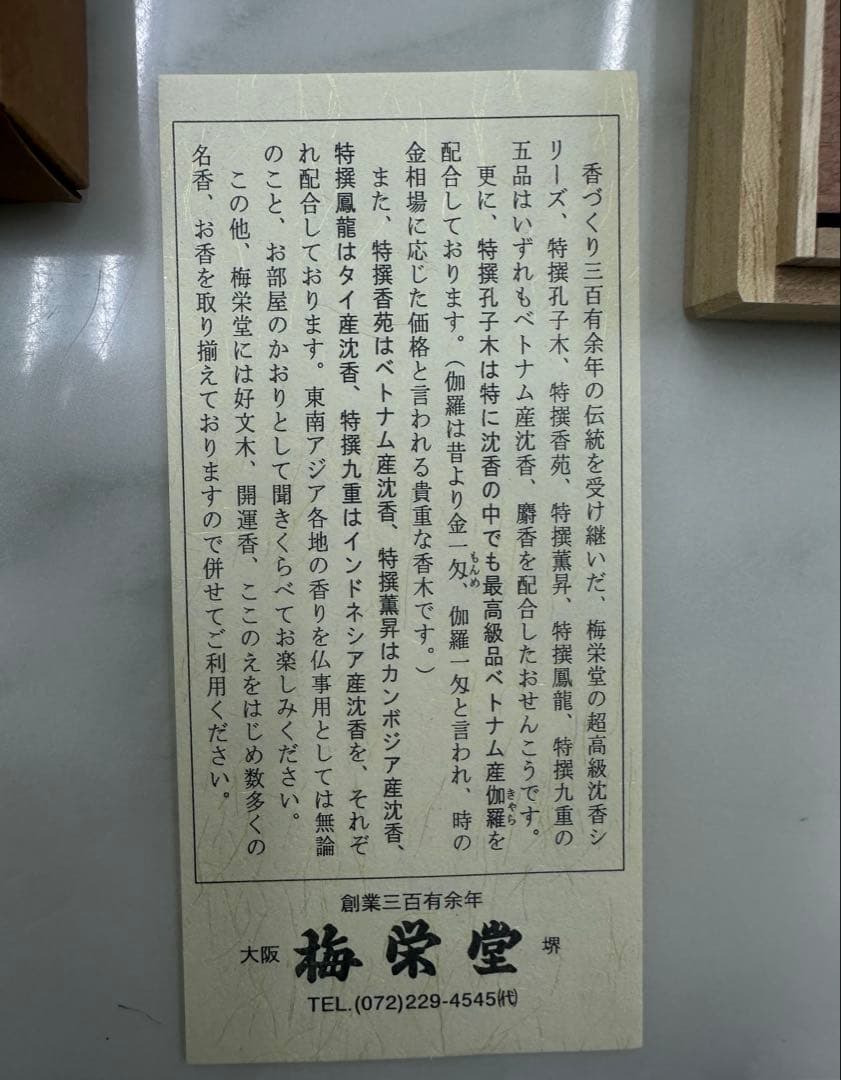 香づくり三百有余年の伝統を受け継いだ、梅栄堂の超高級沈香シ
リーズ、特撰孔子木、特撰香苑、特撰薫昇、特撰鳳龍、特撰九重の
五品はいずれもベトナム産沈香、麝香を配合したおせんこうです。
更に、特撰孔子木は特に沈香の中でも最高級品ベトナム産伽羅を
きゃら
配合しております。（伽羅は昔より金一匁、伽羅一匁と言われ、時の
もんめ
金相場に応じた価格と言われる貴重な香木です。）
また、特撰香苑はベトナム産沈香、特撰薫昇はカンボジア産沈香、
特撰鳳龍はタイ産沈香、特撰九重はインドネシア産沈香を、それぞ
れ配合しております。東南アジア各地の香りを仏事用としては無論
のこと、お部屋のかおりとして聞きくらべてお楽しみください。
この他、梅栄堂には好文木、開運香、ここのえをはじめ数多くの
名香、お香を取り揃えておりますので併せてご利用ください。
創業三百有余年
大阪 梅栄堂 堺
TEL.(072)229-4545㈹